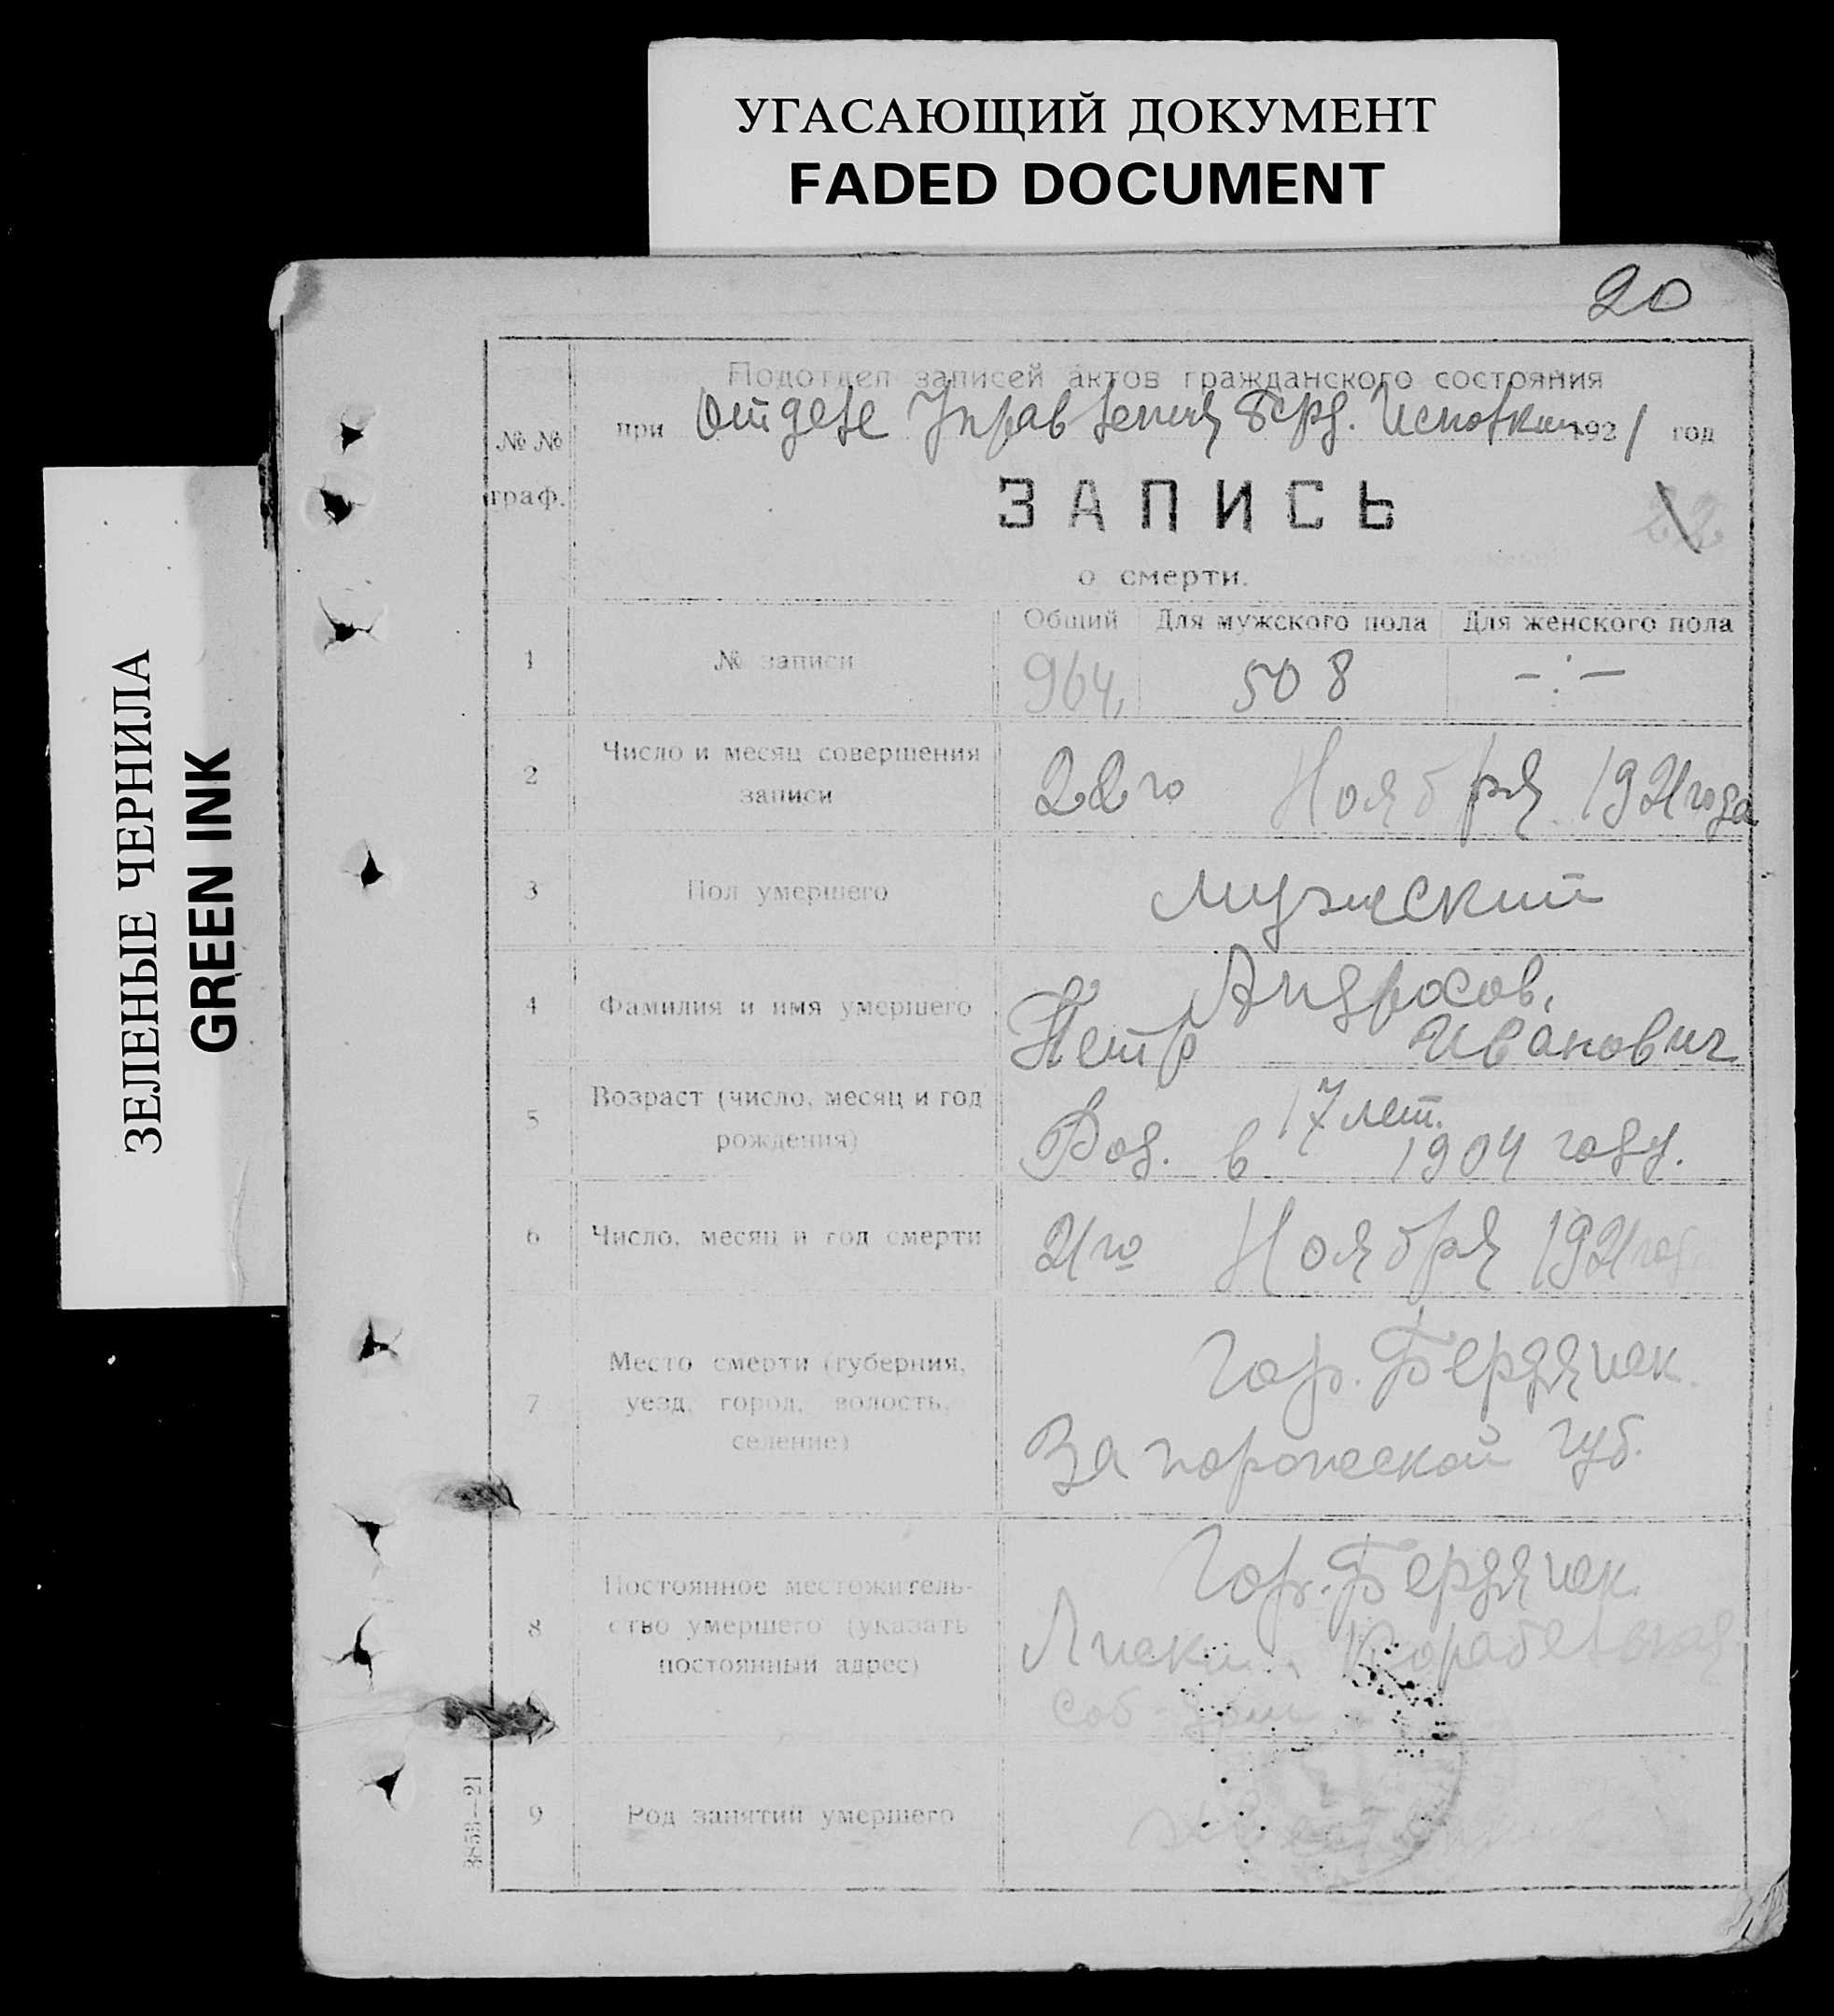 УГАСАЮЩИЙ ДОКУМЕНТ
FADED DOCUMENT
ЗЕЛЕНЫЕ ЧЕРНИЛА
GREEN INK
20
Подотдел записей актов гражданского состояния
при Отделе Управления Берд. Исполкома 1921 год
№ № граф.
ЗАПИСЬ
22
о смерти.
Общий Для мужского пола Для женского пола
1 № записи 964, 508 -:-
2 Число и месяц совершения записи 22го Ноября 1921 года
3 Пол умершего мужский
4 Фамилия и имя умершего Андросов,
Петр Иванович
5 Возраст (число, месяц и год рождения) 17 лет.
Род. в 1904 году.
6 Число, месяц и год смерти 21го Ноября 1921 года
7 Место смерти (губерния, уезд, город, волость, селение) Гор. Бердянск.
Запорожской губ.
8 Постоянное местожительство умершего (указать постоянный адрес) Гор. Бердянск.
Лиски
соб. дом
9 Род занятий умершего
3853—21